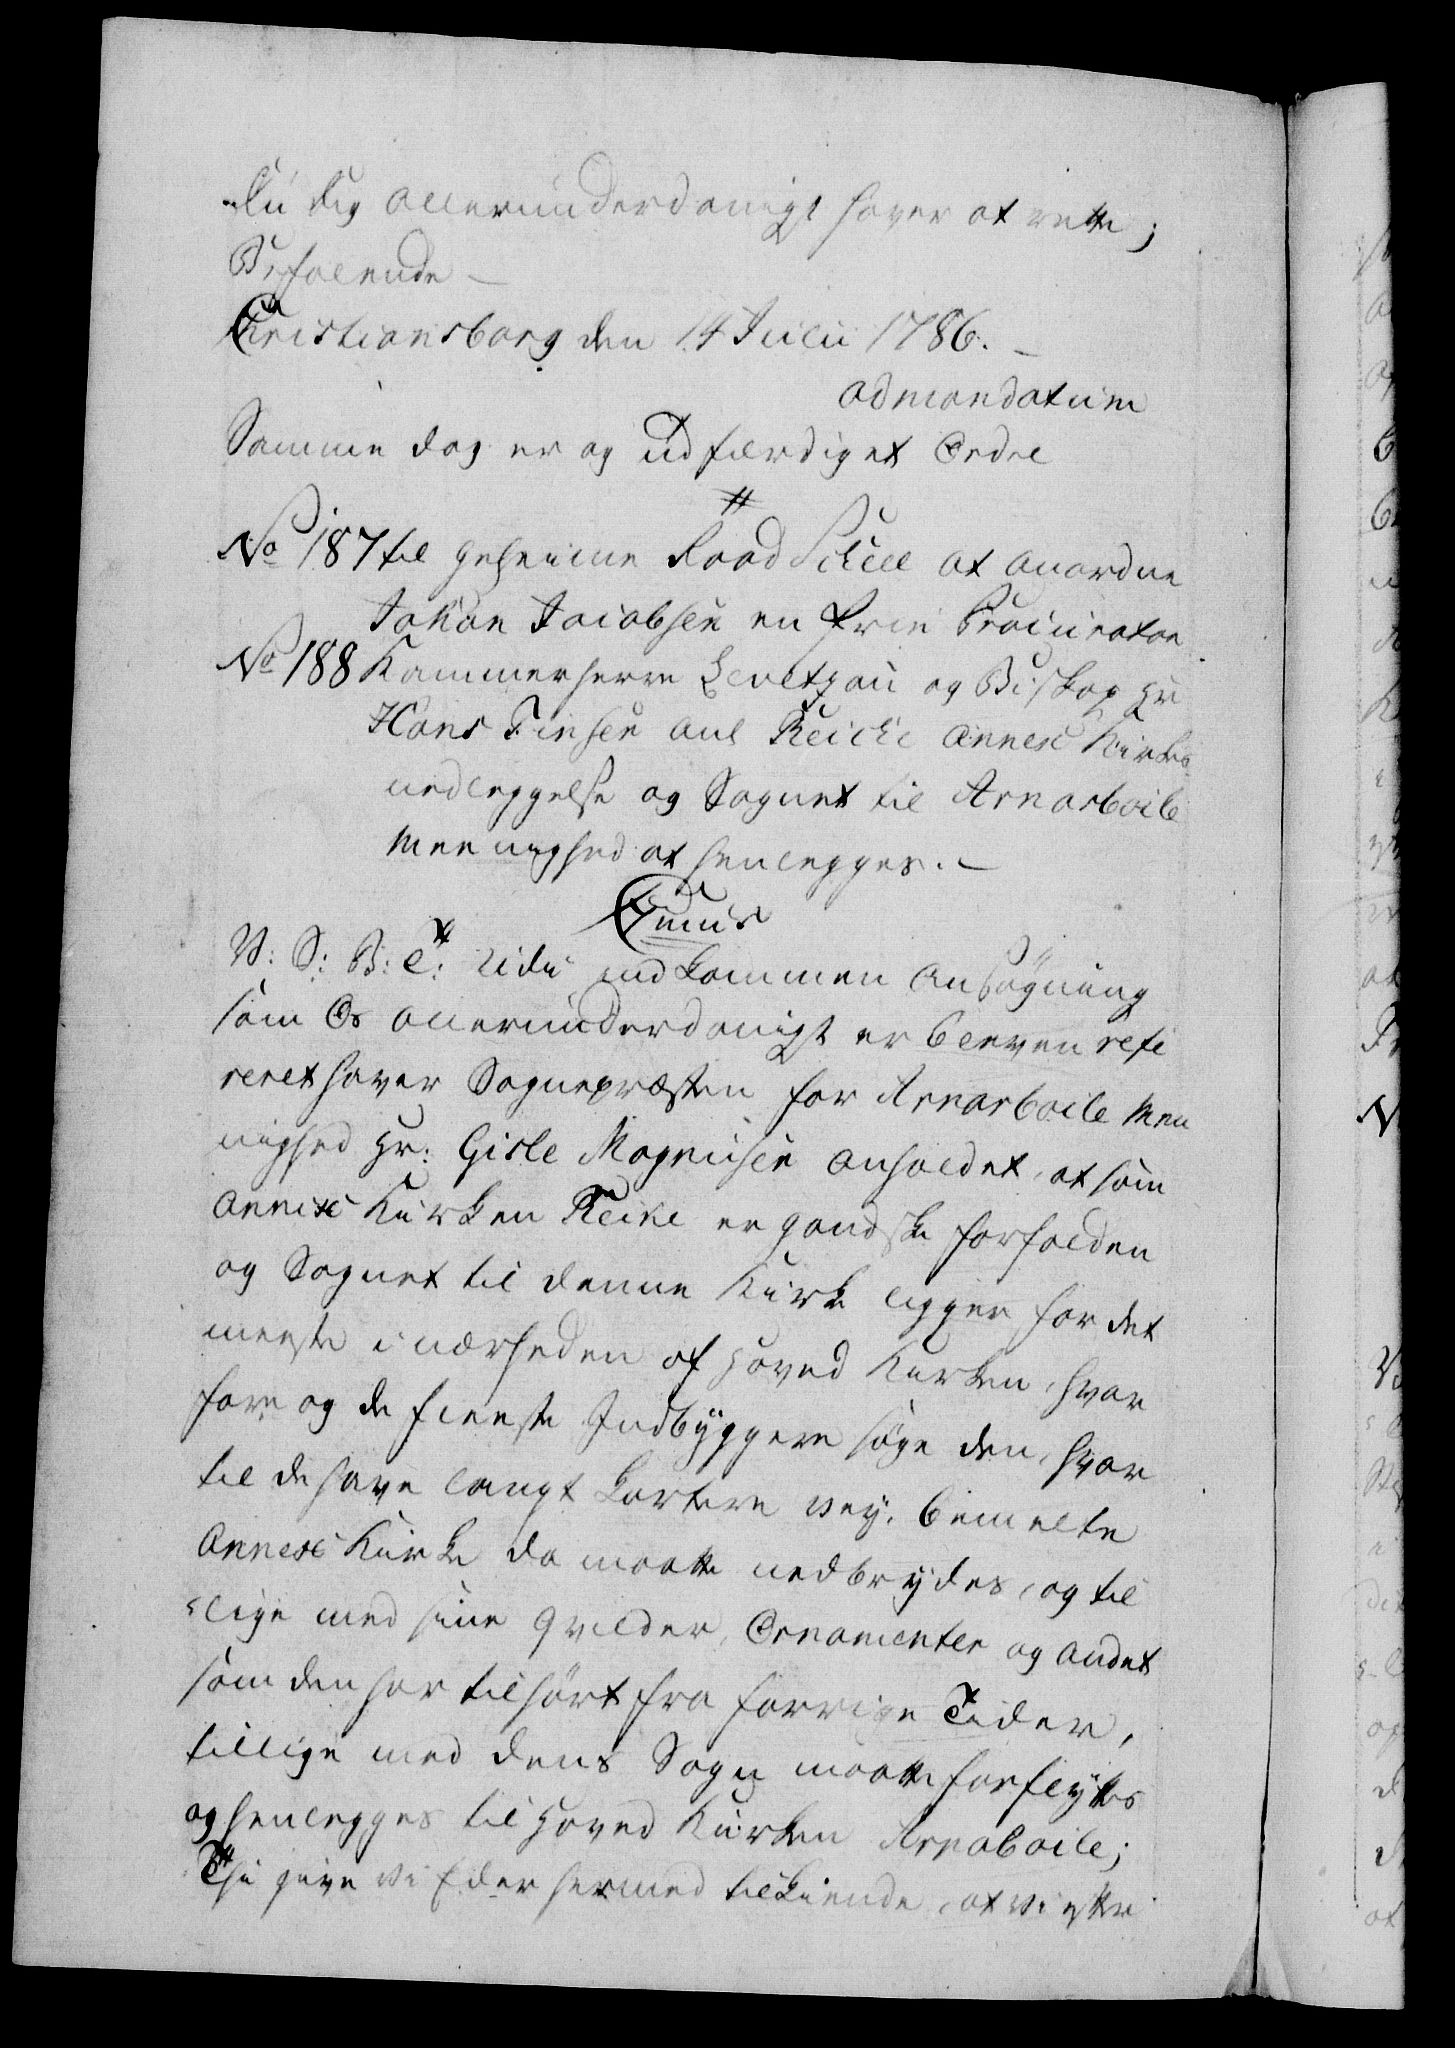 du dig allerunderdanigst haver at rette;
Befalende —
Christiansborg den 14 Julii 1786. —
ad mandatum
Samme dag er og udfærdiget Ordre
No 187 til geheime Raad Schiell at anordne
Johan Jacobsen en frie Procurator
No 188 Kammerherre Levetzau og Biskop Hr
Hans Finsen anl Reiche Annex Kirkes
nedleggelse og Sognet til Arnarboile
Meenighed at henlegges. —
V: S: B: T: Udi indkommen Ansøgning
som Os allerunderdanigst er bleven refe
reret haver Sognepræsten for Arnarboile Mee
nighed Hr: Gisle Magnusen anholdet, at som
Annex Kirken Reike er gandske forfalden
og Sognet til denne Kirke ligger for det
meeste i nærheden af Hoved Kirken, hvor
fore og de fleeste Indbyggere søge den, hvor
til de have langt kortere vey. bemelte
Annex Kirke da maatte nedbrydes, og til
lige med sine gvilder, Ornamenter og andet
som den har tilhørt fra forrige Tider,
tillige med dens Sogn maatte forflyttes
og henlegges til Hoved Kirken Arnaboile;
Thi give vi Eder hermed tilkiende, at vi efter